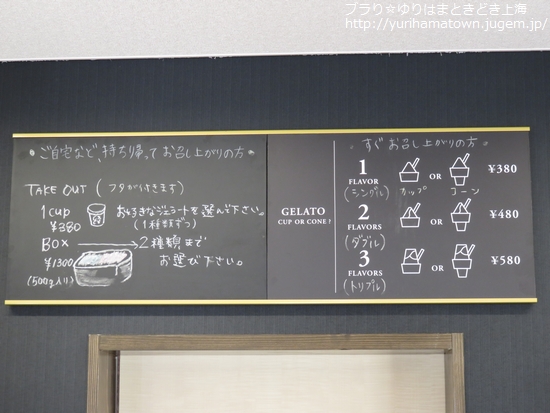 ブラり☆ゆりはまときどき上海
http://yurihamatown.jugem.jp/
ご自宅など、持ち帰ってお召し上がりの方
TAKE OUT (フタが付きます)
1cup
¥380
お好きなジェラートを選んで下さい。
(1種類ずつ)
BOX → 2種類まで
お選び下さい。
¥1300
(500g入り)
すぐお召し上がりの方
GELATO
CUP OR CONE?
1
FLAVOR
(シングル)
OR
カップ
コーン
¥380
2
FLAVORS
(ダブル)
OR
¥480
3
FLAVORS
(トリプル)
OR
¥580